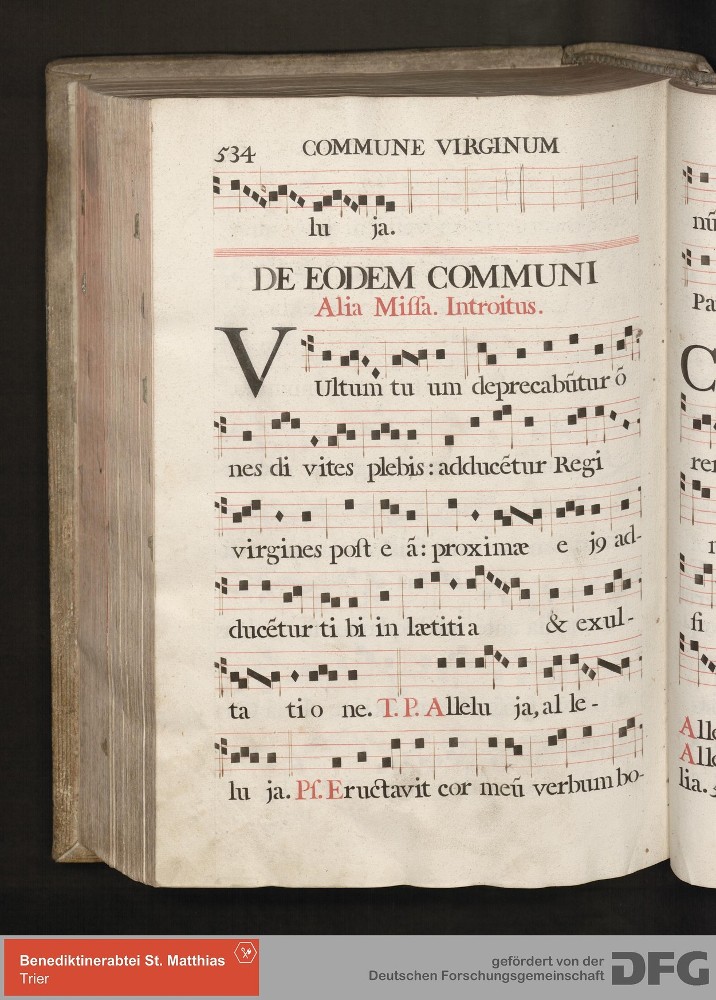 534 COMMUNE VIRGINUM
lu ja.
DE EODEM COMMUNI
Alia Miſſa. Introitus.
VUltum tu um deprecabũtur õ
nes di vites plebis: adducẽtur Regi
virgines poſt e ã: proximæ e jꝯ ad-
ducẽtur ti bi in lætitia & exul-
ta ti o ne. T. P. Allelu ja, al le-
lu ja. Pſ. Eructavit cor meũ verbum bo-
nũ
Pa
C
ren
ſi
Alle
Alle
lia.
Benediktinerabtei St. Matthias
Trier
gefördert von der
Deutschen Forschungsgemeinschaft
DFG